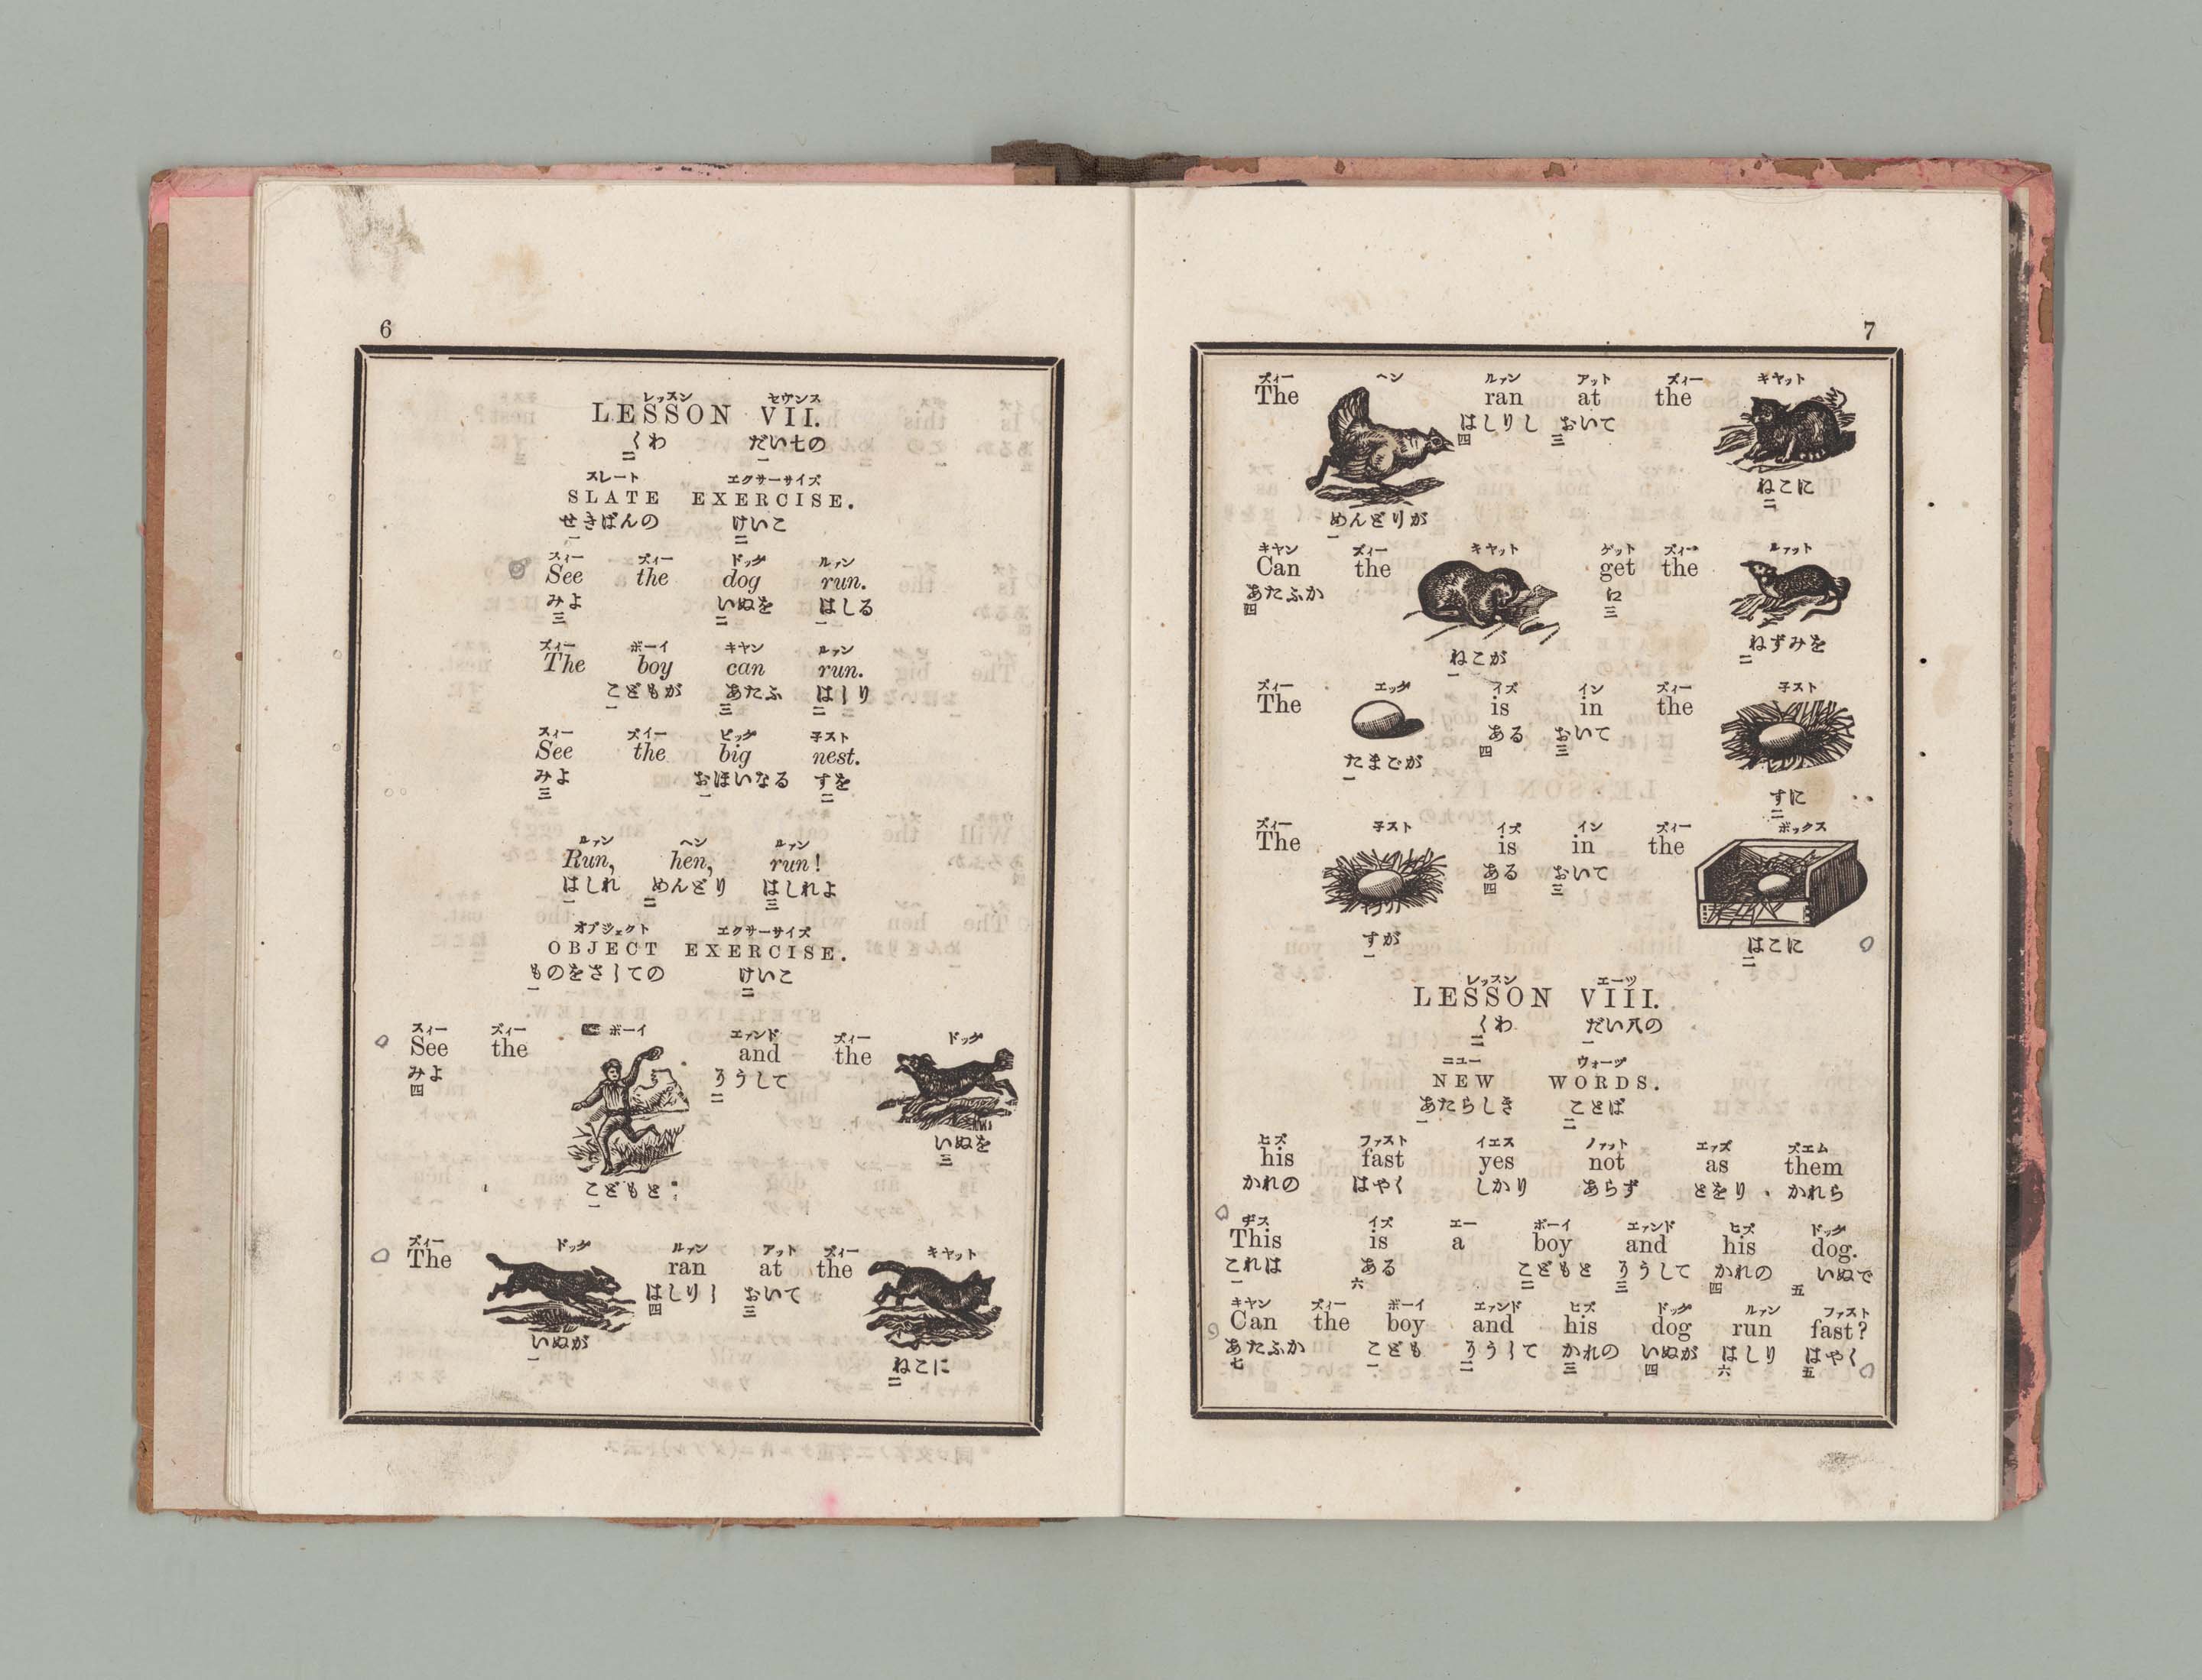 6
レッスン セヴンス
LESSON VII.
くわ だい七の
二 一
スレート エクサーサイズ
SLATE EXERCISE.
せきばんの けいこ
一 二
スィー ズィー ドッグ ルァン
See the dog run.
みよ いぬを はしる
三 二 一
ズィー ボーイ キヤン ルァン
The boy can run.
こどもが あたふ はしり
一 三 二
スィー ズィー ビッグ 子スト
See the big nest.
みよ おほいなる すを
三 一 二
ルァン ヘン ルァン
Run, hen, run!
はしれ めんどり はしれよ
一 二 三
オブジェクト エクサーサイズ
OBJECT EXERCISE.
ものをさしての けいこ
一 二
スィー ズィー ボーイ エァンド ズィー ドッグ
See the and the
みよ そうして いぬを
四 二 三
こどもと
一
ズィー ドッグ ルァン アット ズィー キヤット
The ran at the
はしりし おいて
四 三
いぬが ねこに
一 二
7
ズィー ヘン ルァン アット ズィー キヤット
The ran at the
はしりし おいて
四 三
めんどりが ねこに
一 二
キヤン ズィー キヤット ゲット ズィー ルァット
Can the get the
あたふか に
四 三
ねこが ねずみを
一 二
ズィー エッグ イズ イン ズィー 子スト
The is in the
ある おいて
四 三
たまごが すに
一 二
ズィー 子スト イズ イン ズィー ボックス
The is in the
ある おいて
四 三
すが はこに
一 二
レッスン エーツ
LESSON VIII.
くわ だい八の
二 一
ニユー ウォーヅ
NEW WORDS.
あたらしき ことば
一 二
ヒズ ファスト イエス ノァット エァズ ズエム
his fast yes not as them
かれの はやく しかり あらず とをり かれら
ヂス イズ エー ボーイ エァンド ヒズ ドッグ
This is a boy and his dog.
これは ある こどもと そうして かれの いぬで
一 六 二 三 四 五
キヤン ズィー ボーイ エァンド ヒズ ドッグ ルァン ファスト
Can the boy and his dog run fast?
あたふか こども そうして かれの いぬが はしり はやく
七 一 二 三 四 六 五